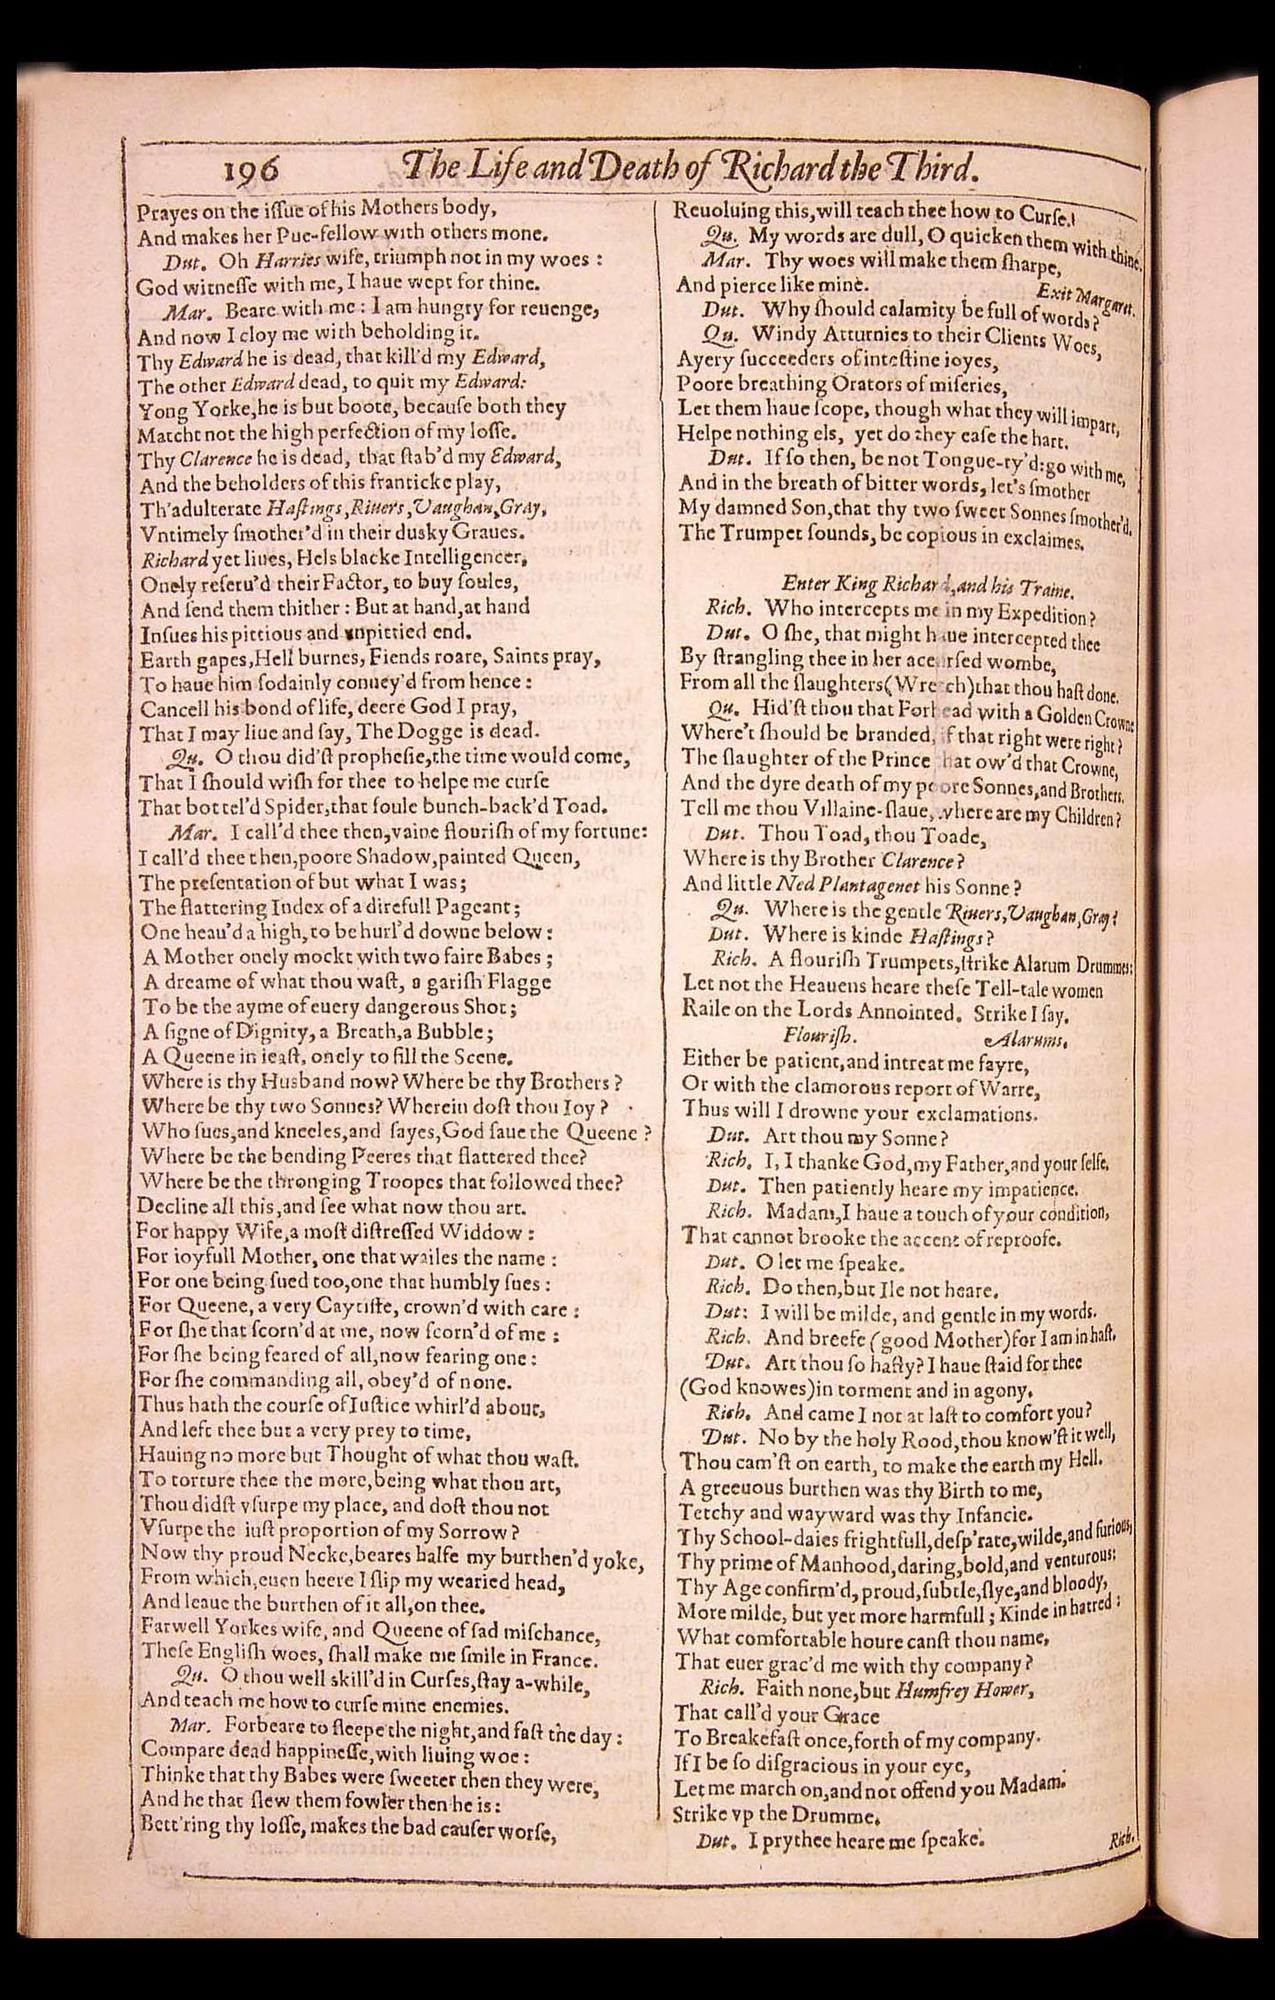 196 The Life and Death of Richard the Third.
Prayes on the iſſue of his Mothers body,
And makes her Pue-fellow with others mone.
Dut. Oh Harries wife, triumph not in my woes :
God witneſſe with me, I haue wept for thine.
Mar. Beare with me : I am hungry for reuenge,
And now I cloy me with beholding it.
Thy Edward he is dead, that kill'd my Edward,
The other Edward dead, to quit my Edward:
Yong Yorke, he is but boote, becauſe both they
Matcht not the high perfection of my loſſe.
Thy Clarence he is dead, that ſtab'd my Edward,
And the beholders of this franticke play,
Th'adulterate Haſtings, Riuers, Vaughan, Gray,
Vntimely ſmother'd in their dusky Graues.
Richard yet liues, Hels blacke Intelligencer,
Onely reſeru'd their Factor, to buy ſoules,
And ſend them thither : But at hand, at hand
Inſues his pittious and vnpittied end.
Earth gapes, Hell burnes, Fiends roare, Saints pray,
To haue him ſodainly conuey'd from hence :
Cancell his bond of life, deere God I pray,
That I may liue and ſay, The Dogge is dead.
Qu. O thou did'ſt propheſie, the time would come,
That I ſhould wiſh for thee to helpe me curſe
That bottel'd Spider, that foule bunch-back'd Toad.
Mar. I call'd thee then, vaine flouriſh of my fortune:
I call'd thee then, poore Shadow, painted Queen,
The preſentation of but what I was;
The flattering Index of a direfull Pageant;
One heau'd a high, to be hurl'd downe below :
A Mother onely mockt with two faire Babes ;
A dreame of what thou waſt, a gariſh Flagge
To be the ayme of euery dangerous Shot;
A ſigne of Dignity, a Breath, a Bubble;
A Queene in ieaſt, onely to fill the Scene.
Where is thy Husband now? Where be thy Brothers ?
Where be thy two Sonnes? Wherein doſt thou Ioy ?
Who ſues, and kneeles, and ſayes, God ſaue the Queene ?
Where be the bending Peeres that flattered thee?
Where be the thronging Troopes that followed thee?
Decline all this, and ſee what now thou art.
For happy Wife, a moſt diſtreſſed Widdow :
For ioyfull Mother, one that wailes the name :
For one being ſued too, one that humbly ſues :
For Queene, a very Caytiffe, crown'd with care :
For ſhe that ſcorn'd at me, now ſcorn'd of me :
For ſhe being feared of all, now fearing one :
For ſhe commanding all, obey'd of none.
Thus hath the courſe of Iuſtice whirl'd about,
And left thee but a very prey to time,
Hauing no more but Thought of what thou waſt.
To torture thee the more, being what thou art,
Thou didſt vſurpe my place, and doſt thou not
Vſurpe the iuſt proportion of my Sorrow ?
Now thy proud Necke, beares halfe my burthen'd yoke,
From which, euen heere I ſlip my wearied head,
And leaue the burthen of it all, on thee.
Farwell Yorkes wife, and Queene of ſad miſchance,
Theſe Engliſh woes, ſhall make me ſmile in France.
Qu. O thou well skill'd in Curſes, ſtay a-while,
And teach me how to curſe mine enemies.
Mar. Forbeare to ſleepe the night, and faſt the day :
Compare dead happineſſe, with liuing woe :
Thinke that thy Babes were ſweeter then they were,
And he that ſlew them fowler then he is :
Bett'ring thy loſſe, makes the bad cauſer worſe,
Reuoluing this, will teach thee how to Curſe.
Qu. My words are dull, O quicken them with thine.
Mar. Thy woes will make them ſharpe,
And pierce like mine. Exit Margaret.
Dut. Why ſhould calamity be full of words?
Qu. Windy Atturnies to their Clients Woes,
Ayery ſucceeders of inteſtine ioyes,
Poore breathing Orators of miſeries,
Let them haue ſcope, though what they will impart,
Helpe nothing els, yet do they eaſe the hart.
Dut. If ſo then, be not Tongue-ty'd: go with me,
And in the breath of bitter words, let's ſmother
My damned Son, that thy two ſweet Sonnes ſmother'd.
The Trumpet ſounds, be copious in exclaimes.
Enter King Richard, and his Traine.
Rich. Who intercepts me in my Expedition?
Dut. O ſhe, that might haue intercepted thee
By ſtrangling thee in her accurſed wombe,
From all the ſlaughters (Wretch) that thou haſt done.
Qu. Hid'ſt thou that Forhead with a Golden Crowne
Where't ſhould be branded, if that right were right ?
The ſlaughter of the Prince that ow'd that Crowne,
And the dyre death of my poore Sonnes, and Brothers.
Tell me thou Villaine-ſlaue, where are my Children ?
Dut. Thou Toad, thou Toade,
Where is thy Brother Clarence ?
And little Ned Plantagenet his Sonne ?
Qu. Where is the gentle Riuers, Vaughan, Gray?
Dut. Where is kinde Haſtings ?
Rich. A flouriſh Trumpets, ſtrike Alarum Drummes:
Let not the Heauens heare theſe Tell-tale women
Raile on the Lords Annointed. Strike I ſay.
Flouriſh. Alarums.
Either be patient, and intreat me fayre,
Or with the clamorous report of Warre,
Thus will I drowne your exclamations.
Dut. Art thou my Sonne ?
Rich. I, I thanke God, my Father, and your ſelfe.
Dut. Then patiently heare my impatience.
Rich. Madam, I haue a touch of your condition,
That cannot brooke the accent of reproofe.
Dut. O let me ſpeake.
Rich. Do then, but Ile not heare.
Dut: I will be milde, and gentle in my words.
Rich. And breefe (good Mother) for I am in haſt.
Dut. Art thou ſo haſty? I haue ſtaid for thee
(God knowes) in torment and in agony.
Rich. And came I not at laſt to comfort you?
Dut. No by the holy Rood, thou know'ſt it well,
Thou cam'ſt on earth, to make the earth my Hell.
A greeuous burthen was thy Birth to me,
Tetchy and wayward was thy Infancie.
Thy School-daies frightfull, deſp'rate, wilde, and furious,
Thy prime of Manhood, daring, bold, and venturous:
Thy Age confirm'd, proud, ſubtle, ſlye, and bloody,
More milde, but yet more harmfull ; Kinde in hatred :
What comfortable houre canſt thou name,
That euer grac'd me with thy company ?
Rich. Faith none, but Humfrey Hower,
That call'd your Grace
To Breakefaſt once, forth of my company.
If I be ſo diſgracious in your eye,
Let me march on, and not offend you Madam.
Strike vp the Drumme.
Dut. I prythee heare me ſpeake.
Rich.